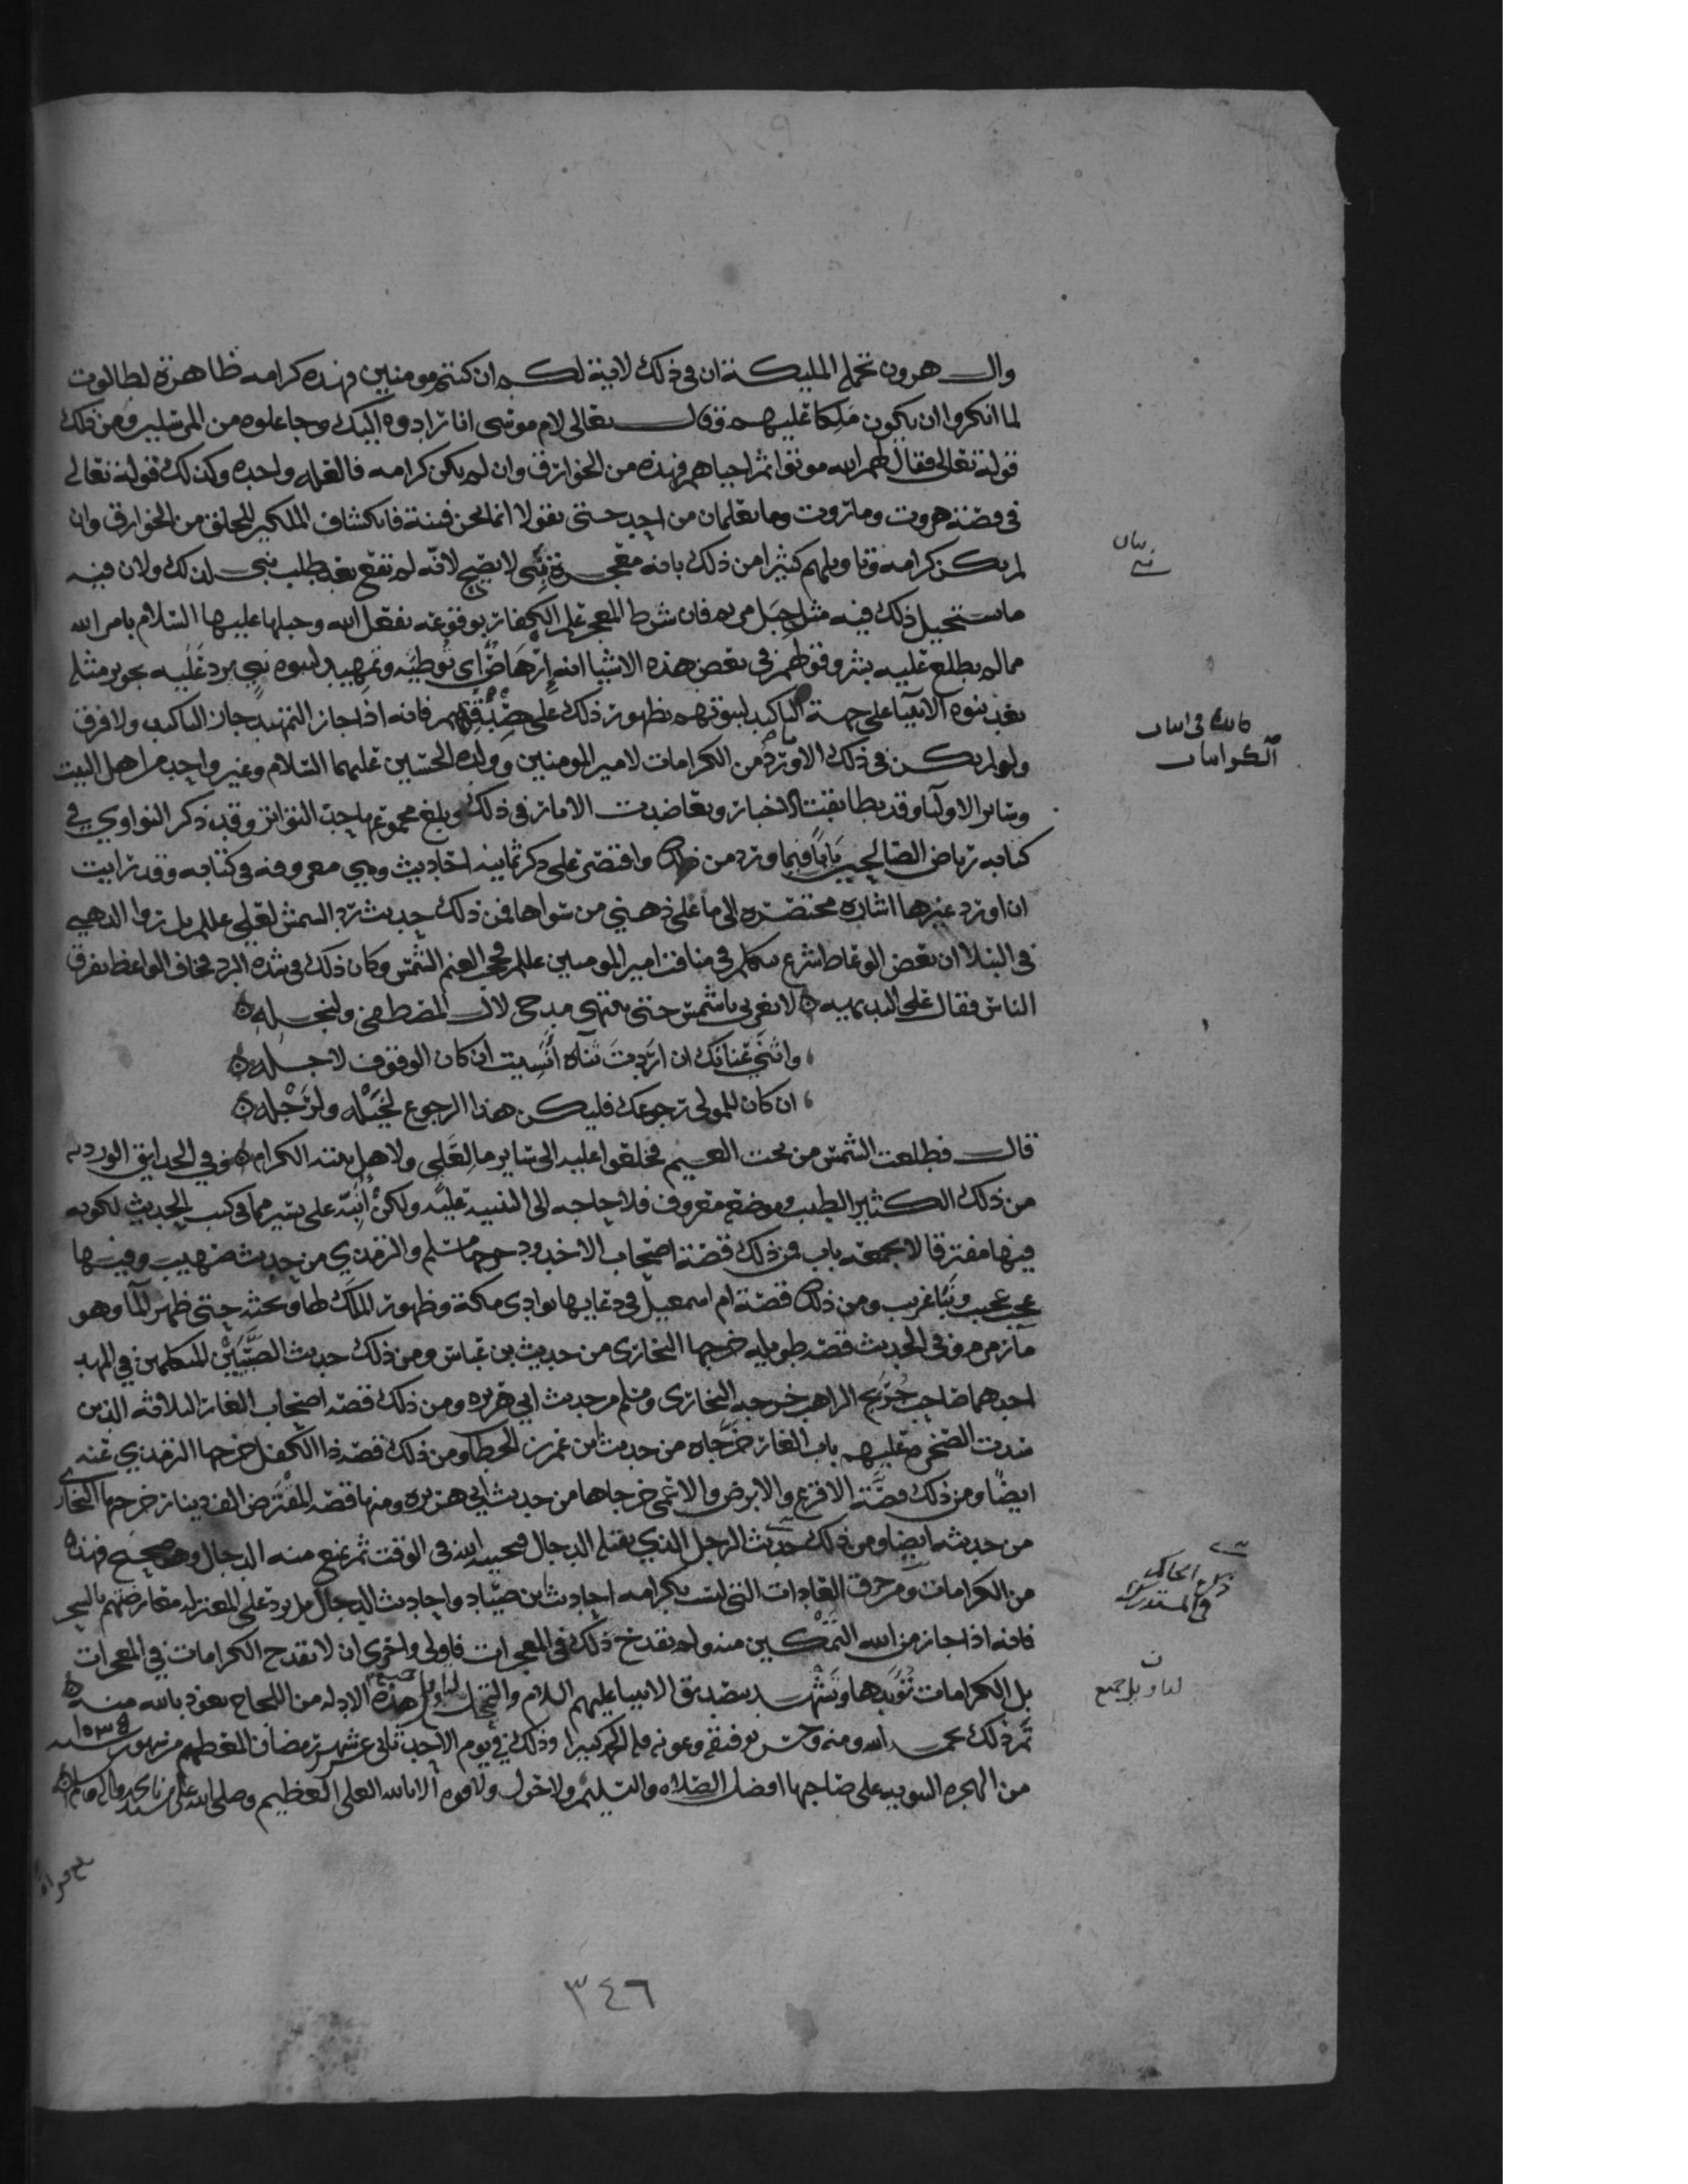 وال هرون تحمله المليكة ان في ذلك لاية لكم ان كنتم مومنين فهذه كرامه ظاهرة لطالوت
لما انكروا ان يكون ملكا عليهم وقال تعالى لام موسى انا رادوه اليك وجاعلوه من المرسلين ومن ذلك
قوله تعالى فقال لهم الله موتوا ثم احياهم فهذه من الخوارق وان لم يكن كرامه فالعله واحده وكذلك قوله تعالى
في قصة هروت ومروت وما يعلمان من احد حتى يقولا انما نحن فتنة فانكشاف الملكين للخلق من الخوارق وان
لم يكن كرامه وتاويلهم كثيرا من ذلك بانه معجزة نبي لا يصح لانه لم تقع بعد طلب نبي لذلك ولان فيه
ما يستحيل ذلك فيه مثل حبل مريم فان شرط المعجز علم الكفار بوقوعه بفعل الله وحبلها عليها السلام بامر الله
مما لم يطلع عليه بشر وقولهم في بعض هذه الاشيا انه ارهاص اي توطيه وتمهيد لنبوه نبي يرد عليه تجويز مثله
بعد نبوه الانبيا على جهة التاكيد لنبوتهم بظهور ذلك على فانه اذا جاز التمهيد جاز التاكيد ولا فرق
ولو لم يكن في ذلك الا ورد من الكرامات لامير المومنين وولده الحسين عليهما السلام وغير واحد من اهل البيت
وساير الاوليا وقد تطابقت الاخبار وتعاضدت الاثار في ذلك وبلغ مجموعها حد التواتر وقد ذكر النواوي في
كتابه رياض الصالحين بابا فيما ورد من ذلك واقتصر على ذكر ثمانيه احاديث وهي معروفه في كتابه وقد رايت
ان اورد غيرها اشاره مختصره الى ما على ذهني من سواها فمن ذلك حديث رد الشمس لعلي عللم بل روا الذهبي
في النبلا ان بعض الوعاظ شرع يتكلم في مناقب امير المومنين عللم فحجب الغيم الشمس وكان ذلك في شده البرد فخاف الواعظ تفرق
الناس فقال على البديهيه لا تغربي يا شمس حتى ينتهي مدحي لال المصطفى ولنجله
واثني عنانك ان اردت ثناه انسيت ان كان الوقوف لاجله
ان كان للمولى رجوعك فليكن هذا الرجوع لخيله ولرجله
قال فطلعت الشمس من تحت الغيم فخلعوا عليه الى ساير ما لعلي ولاهل بيته الكرام وفي الحدايق الورديه
من ذلك الكثير الطيب وموضعه معروف فلا حاجه الى التنبيه عليه ولكن انبه على يسير مما في كتب الحديث لكونه
فيها مفترقا لا يجمعه باب فمن ذلك قصة اصحاب الاخدود خرجها مسلم والترمذي من حديث صهيب وفيها
عجب عجيب ونبا غريب ومن ذلك قصة ام اسمعيل في دعايها بوادي مكة وظهور الملك لها وبحثه حتى ظهر الما وهو
ما زمزم وفي الحديث قصه طويله خرجها البخاري من حديث بن عباس ومن ذلك حديث الصبيين المتكلمين في المهد
احدهما صاحب جريج الراهب خرجه البخاري ومسلم من حديث ابي هريره ومن ذلك قصه اصحاب الغار الثلاثه الذين
سدت الصخره عليهم باب الغار خرجاه من حديث بن عمر بن الخطاب ومن ذلك قصه ذا الكفل خرجها الترمذي عنه
ايضا ومن ذلك قصة الاقرع والابرص والاعمى خرجاها من حديث ابي هريره ومنها قصه المقترض الف دينار خرجها البخاري
من حديثه ايضا ومن ذلك حديث الرجل الذي يقتله الدجال فيحييه الله في الوقت ثم يمنع منه الدجال وهو صحيح فهذه
من الكرامات ومن خرق العادات التي ليست بكرامه احاديث بن صياد واحاديث الدجال بل يرد على المعتزله معارضتهم بالسحر
فانه اذا جاز من الله التمكين منه ولم يقدح ذلك في المعجزات فاولى واحرى ان لا تقدح الكرامات في المعجزات
بل الكرامات تؤيدها وتشهد بتصديق الانبيا عليهم السلام والتمحل لتاويل جميع هذه الادله من اللجاج نعوذ بالله منه
تم ذلك بحمد الله ومنه وحسن توفيقه وعونه فله الحمد كثيرا وذلك في يوم الاحد ثاني عشر شهر رمضان المعظم من شهور سنه ١٠٣٥
من الهجره النبويه على صاحبها افضل الصلاه والتسليم ولا حول ولا قوه الا بالله العلي العظيم وصلى الله على سيدنا محمد واله وسلم
بيان
فائدة في اثبات
الكرامات
ذكره الحاكم
في المستدرك
ن
لتاويل جميع
بلغ قراءة
٣٤٦